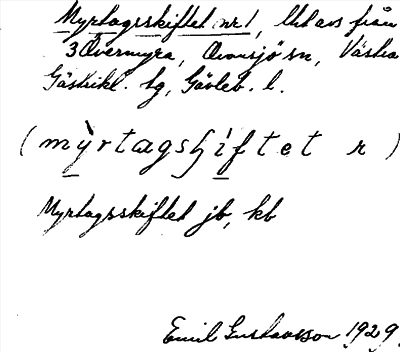 Myrtagsskiftet nr 1, lht avs från
3 Övermyra, Ovansjö sn, Västra
Gästrikl. tg, Gävleb. l.
(m ỳ̱ r t a g s ʃ i̱̍ f t e t r)
Myrtagsskiftet jb, kb
Emil Gustavsson 1929.